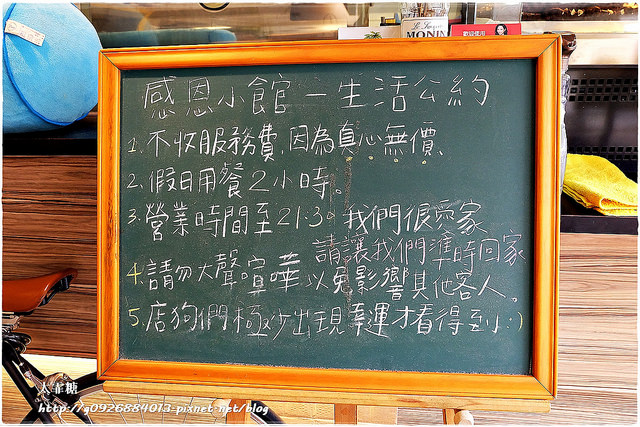 MONIN
感恩小館－生活公約
1.不收服務費,因為真心無價、
2.假日用餐2小時。
3.營業時間至21:30 我們很愛家
請讓我們準時回家
4.請勿大聲喧嘩以免影響其他客人。
5.店狗們極少出現幸運才看得到:)
大非糖
http://g0926884013.pixnet.net/blog